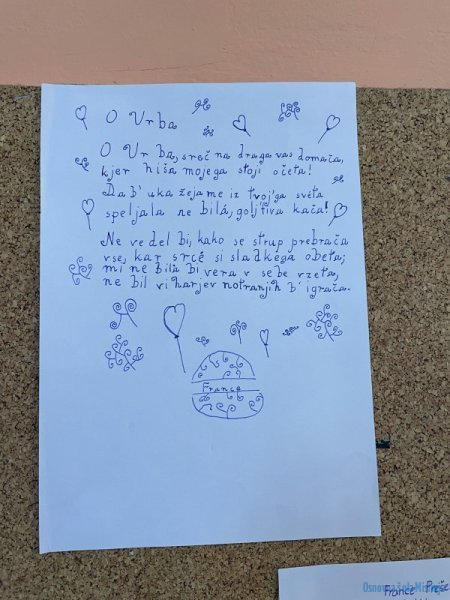 O Vrba
O Vrba, srečna draga vas domača,
kjer hiša mojega stoji očeta!
Da b' uka žeja me iz tvoj'ga svéta
speljala ne bilà, goljfiva kača!
Ne vedel bi, kako se strup prebrača
vse, kar srcé si sladkega obeta;
mi ne bila bi vera v sebe vzeta,
ne bil viharjev notranjih b' igrača.
France
France Preše